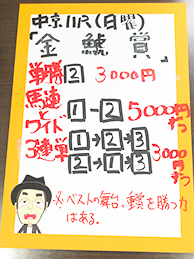 中京11R(日曜)
「金鯱賞」
単勝 2 3000円
馬連と 1-2 5000円ずつ
ワイド
3連単 1→2→3 3000円ずつ
2→1→3
※ベストの舞台。重賞を勝つ力
はある。